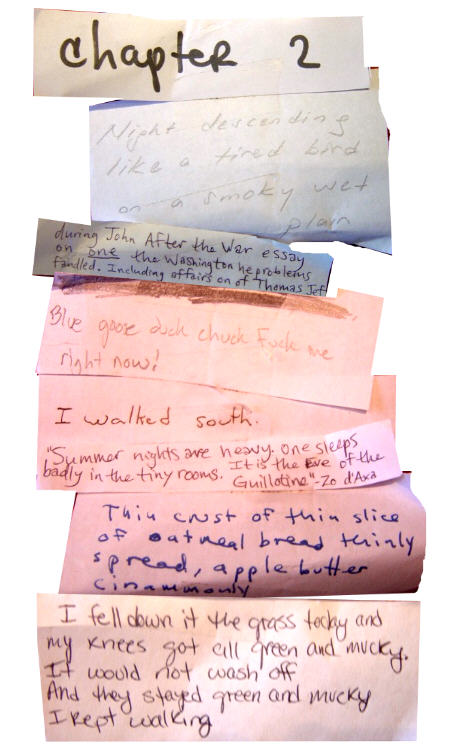 chapter 2
Night descending
like a tired bird
on a smoky wet
plain
during John After the War essay
on one the Washington he problems
fandled. Including affairs on of Thomas Jef
Blue goose duck chuck Fuck me
right now!
I walked south.
"Summer nights are heavy. One sleeps
badly in the tiny rooms. It is the Eve of the
Guillotine"-Zo d'Axa
Thin crust of thin slice
of oatmeal bread thinly
spread, apple butter
cinammonly
I fell down it the grass today and
my knees got all green and mucky.
It would not wash off
And they stayed green and mucky
I kept walking